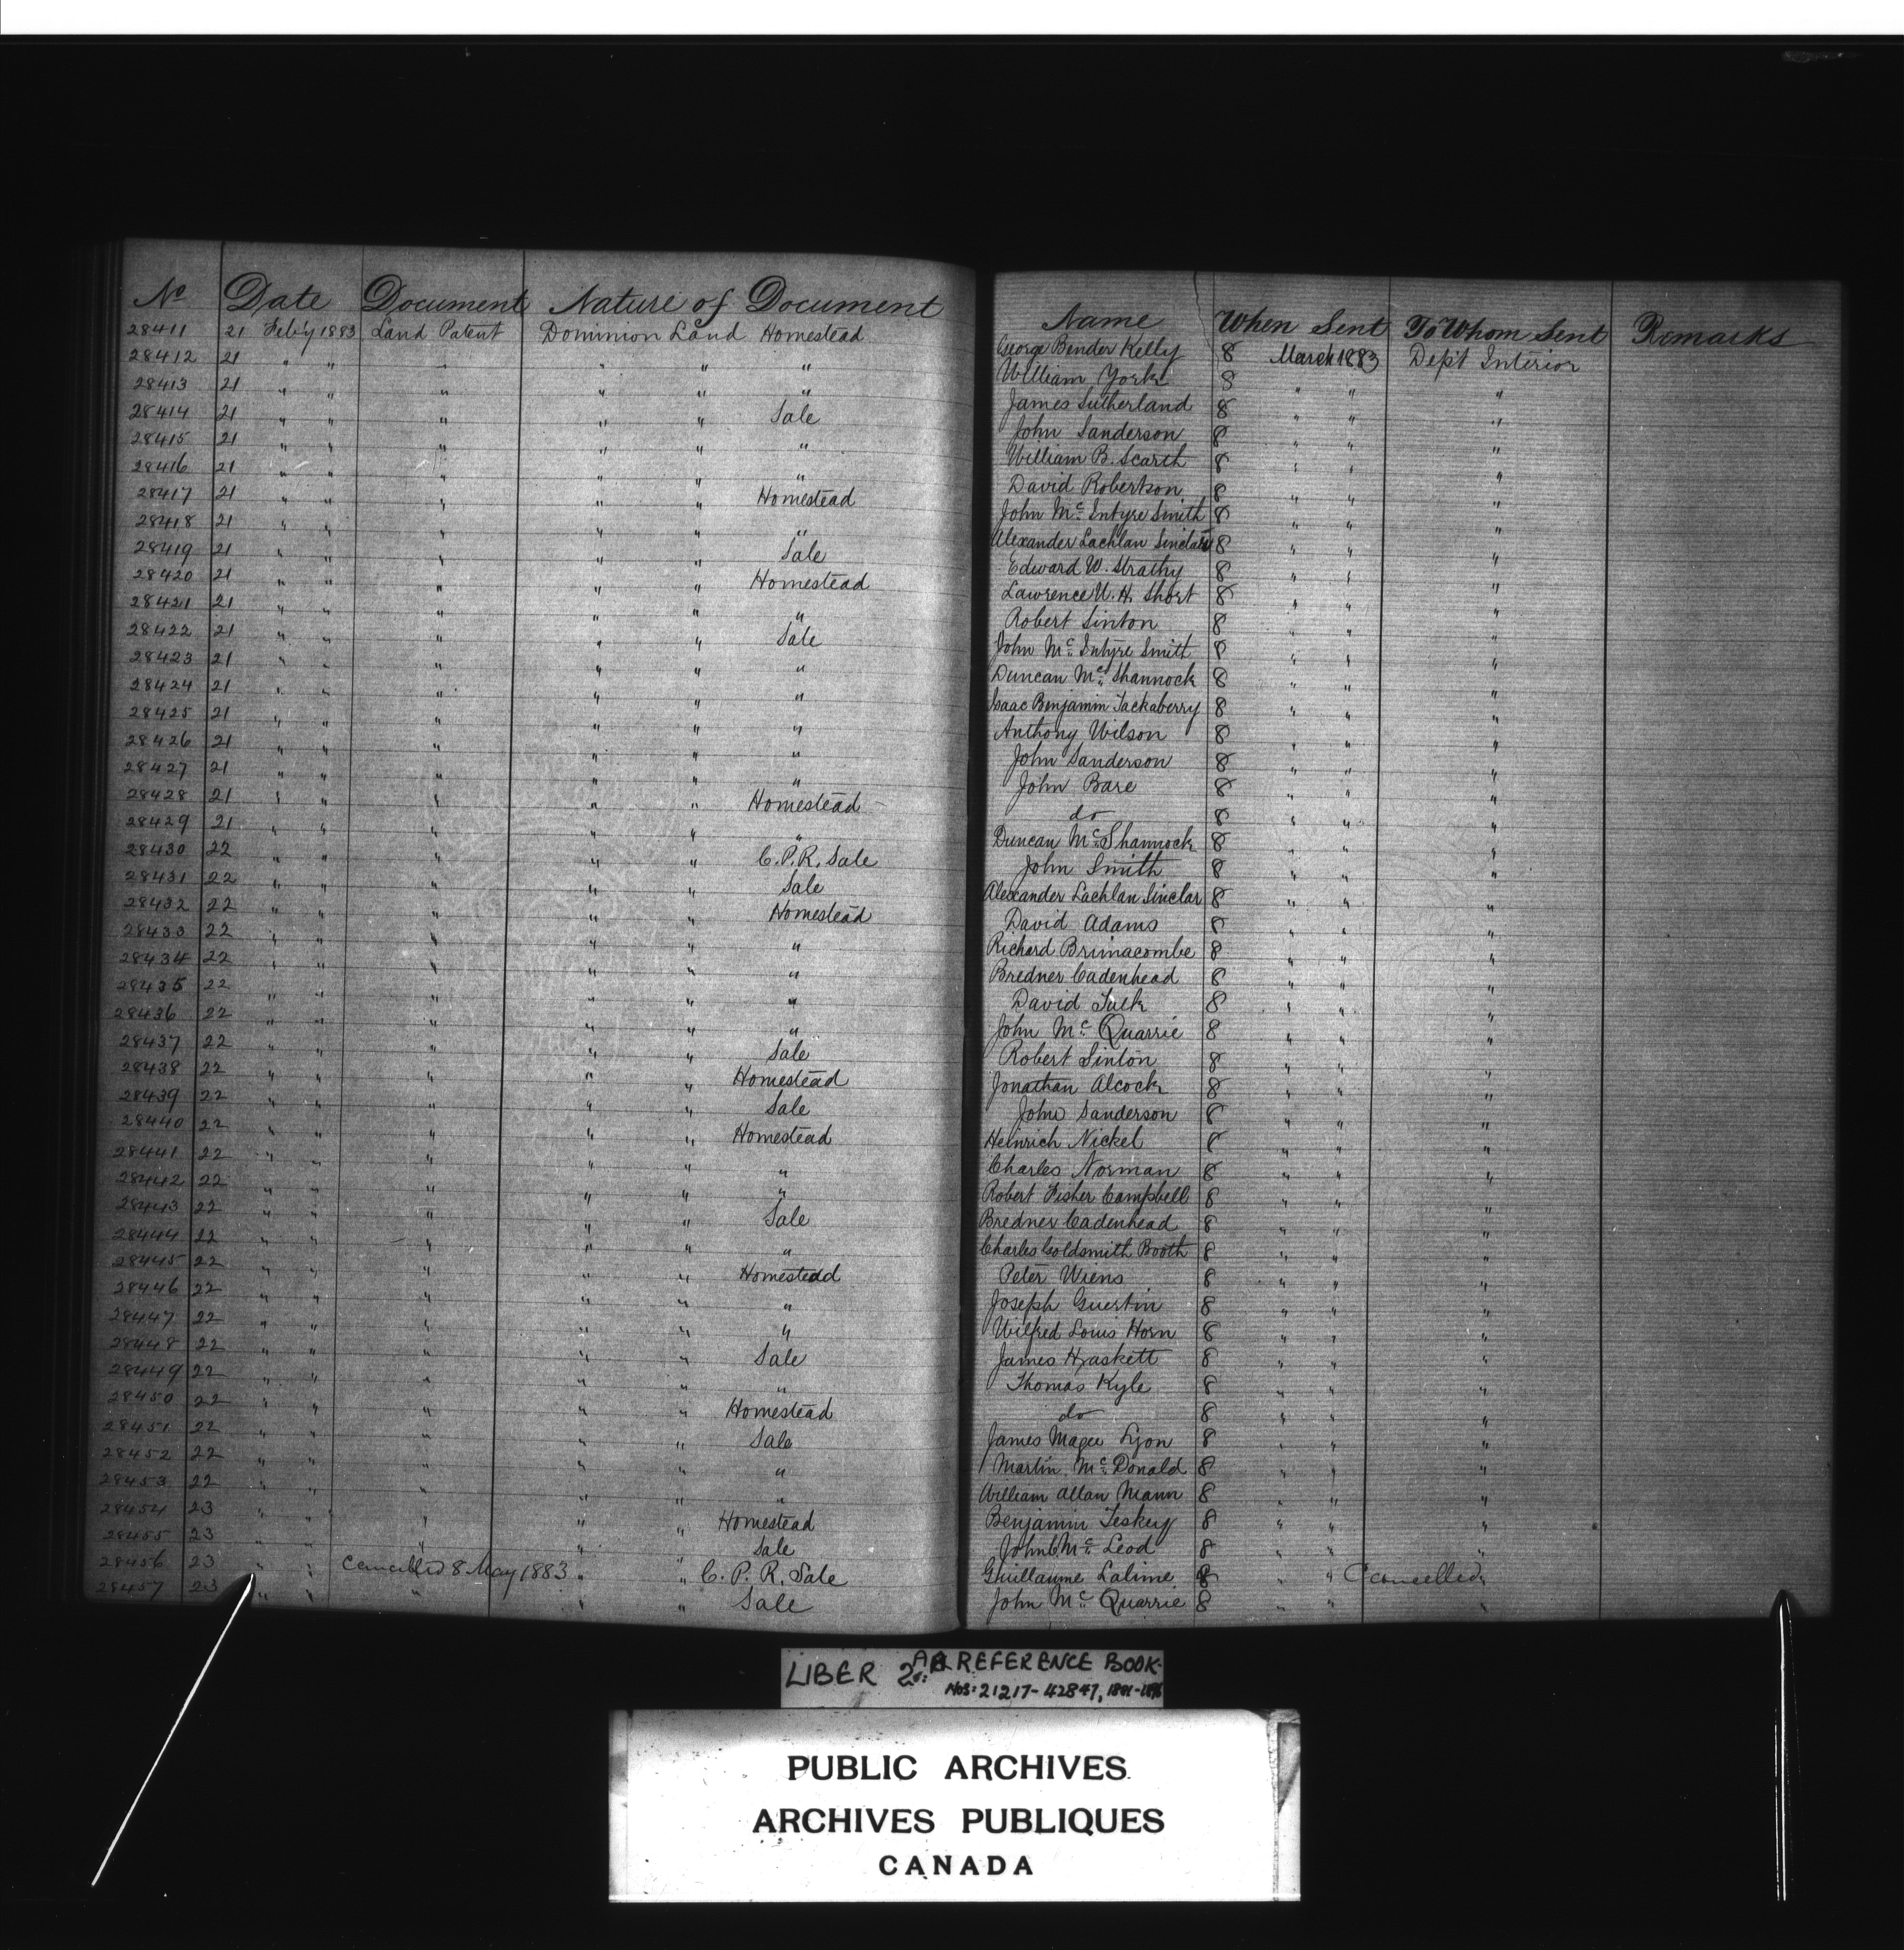 No Date Document Nature of Document Name When Sent To Whom Sent Remarks
28411 21 Feb'y 1883 Land Patent Dominion Land Homestead George Bender Kelly 8 March 1883 Dep't Interior
28412 21 " " " " " " William York 8 " " "
28413 21 " " " " " " James Sutherland 8 " " "
28414 21 " " " " " Sale John Sanderson 8 " " "
28415 21 " " " " " " William B. Scarth 8 " " "
28416 21 " " " " " " David Robertson 8 " " "
28417 21 " " " " " Homestead John Mc Intyre Smith 8 " " "
28418 21 " " " " " " Alexander Lachlan Sinclair 8 " " "
28419 21 " " " " " Sale Edward W. Strathy 8 " " "
28420 21 " " " " " Homestead Lawrence U. H. Short 8 " " "
28421 21 " " " " " " Robert Sinton 8 " " "
28422 21 " " " " " Sale John Mc Intyre Smith 8 " " "
28423 21 " " " " " " Duncan Mc Shannock 8 " " "
28424 21 " " " " " " Isaac Benjamin Tackaberry 8 " " "
28425 21 " " " " " " Anthony Wilson 8 " " "
28426 21 " " " " " " John Sanderson 8 " " "
28427 21 " " " " " " John Bare 8 " " "
28428 21 " " " " " Homestead do 8 " " "
28429 21 " " " " " " Duncan Mc Shannock 8 " " "
28430 22 " " " " " C. P. R. Sale John Smith 8 " " "
28431 22 " " " " " Sale Alexander Lachlan Sinclar 8 " " "
28432 22 " " " " " Homestead David Adams 8 " " "
28433 22 " " " " " " Richard Brimacombe 8 " " "
28434 22 " " " " " " Bredner Cadenhead 8 " " "
28435 22 " " " " " " David Tulk 8 " " "
28436 22 " " " " " " John Mc Quarrie 8 " " "
28437 22 " " " " " Sale Robert Sinton 8 " " "
28438 22 " " " " " Homestead Jonathan Alcock 8 " " "
28439 22 " " " " " Sale John Sanderson 8 " " "
28440 22 " " " " " Homestead Heinrich Nickel 8 " " "
28441 22 " " " " " " Charles Norman 8 " " "
28442 22 " " " " " " Robert Fisher Campbell 8 " " "
28443 22 " " " " " Sale Bredner Cadenhead 8 " " "
28444 22 " " " " " " Charles Goldsmith Booth 8 " " "
28445 22 " " " " " Homestead Peter Wiens 8 " " "
28446 22 " " " " " " Joseph Guertin 8 " " "
28447 22 " " " " " " Wilfred Louis Horn 8 " " "
28448 22 " " " " " Sale James Haskett 8 " " "
28449 22 " " " " " " Thomas Kyle 8 " " "
28450 22 " " " " " Homestead do 8 " " "
28451 22 " " " " " Sale James Magee Lyon 8 " " "
28452 22 " " " " " " Martin Mc Donald 8 " " "
28453 22 " " " " " " William Allan Mann 8 " " "
28454 23 " " " " " Homestead Benjamin Teskey 8 " " "
28455 23 " " " " " Sale John C. Mc Leod 8 " " "
28456 23 " " Cancelled 8 May 1883 " " C. P. R. Sale Guillaume Lalime 8 " " Cancelled "
28457 23 " " " " " Sale John Mc Quarrie 8 " " "
LIBER 2A: REFERENCE BOOK.
NOS: 21217-42847,
PUBLIC ARCHIVES
ARCHIVES PUBLIQUES
CANADA